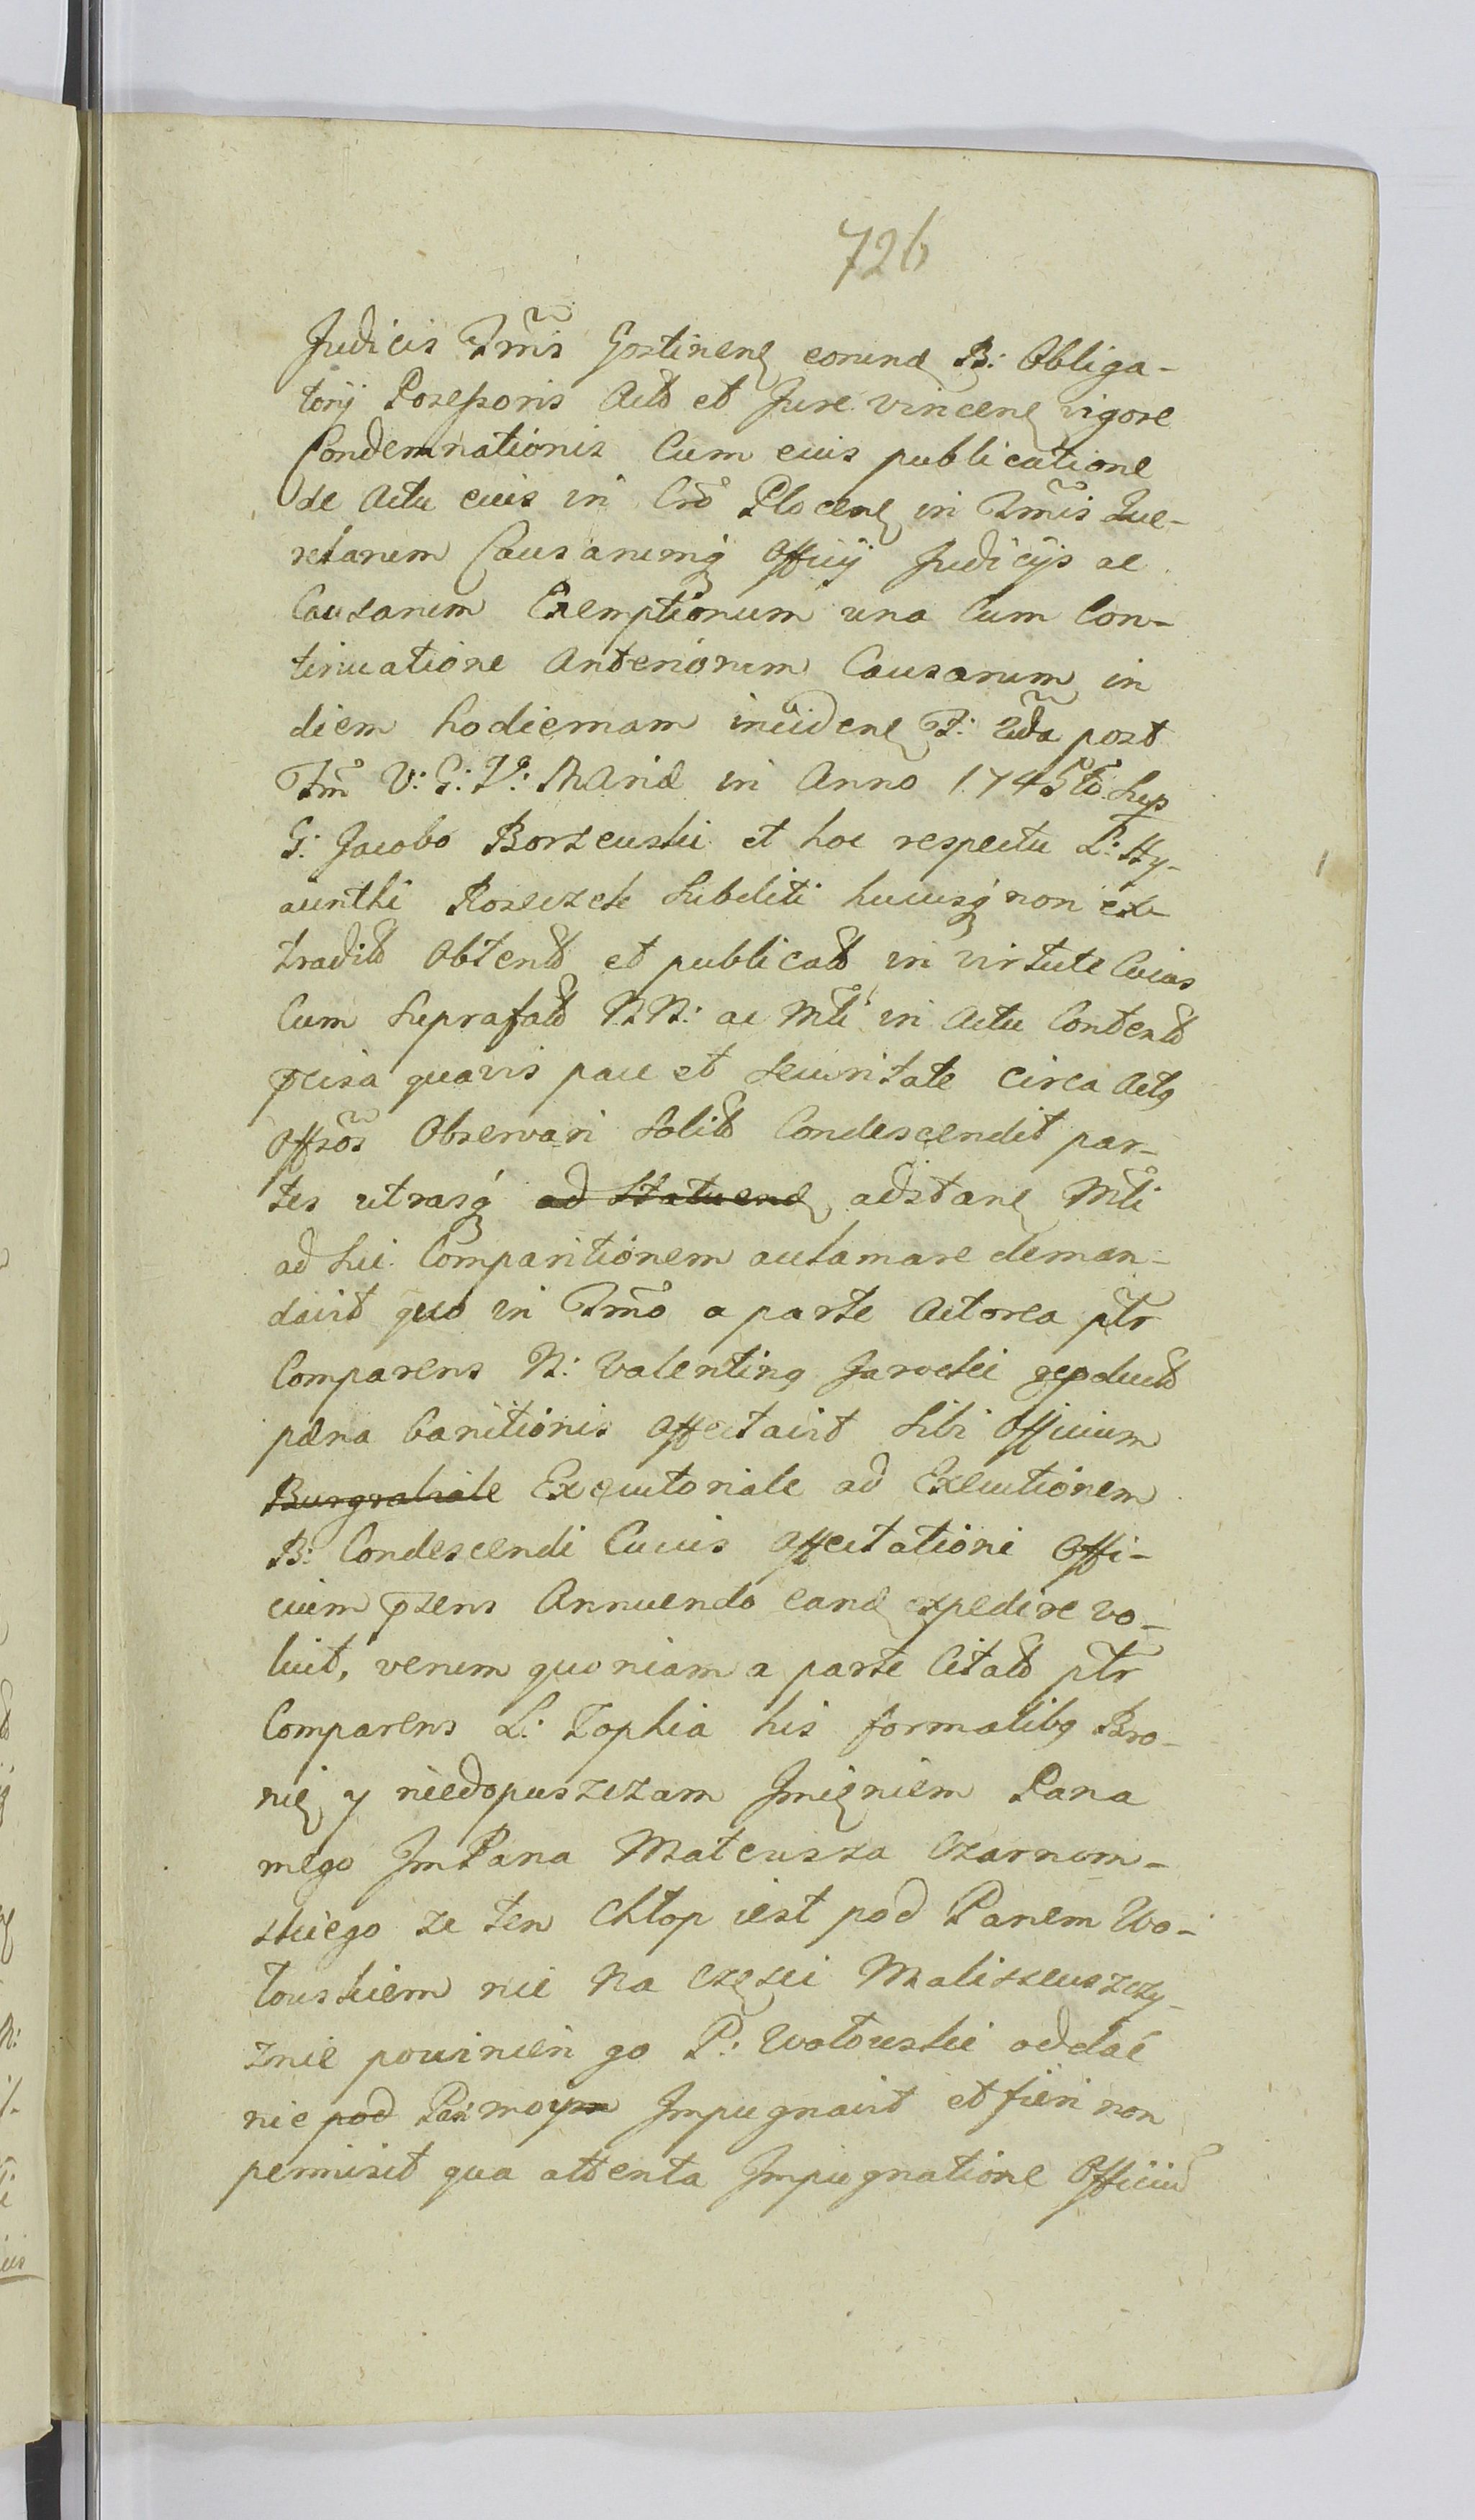 726
Judicis Trmis Gostinen eorund B: Obliga-
torij Posessoris Acto et Jure vincen vigore
Condemnationis Cum euis publicatione
de Actu euis in Cro Plocen in Trmis Que-
relarum Causarumq Officij Judicijs ac
Causarum Exemptionum una Cum Con-
tinuatione Anteriorum Causarum in
diem hodiernam inciden F: 2da post
Fm V: G: V: Maria in Anno 1745to Sup
G: Jacobo Borzewski et hoc respectu L: Hy-
acinthi Kosiczek Subditi hucusq non ex-
tradito Obtento et publicato in virtute Cuius
Cum Suprafato NN: ac Mti in Actu Contento
pcisa quavis pace et Securitate circa Actq
Offsos Observari Solito Condescendit par-
tes utrasq ad Statuend adstan Mti
ad Sui Comparitionem aclamare deman-
davit quo in Trmo a parte Actorea ptr
Comparens N: Valentinq Jarocki repducto
pæna banitionis Affectavit Sibi Officium
Burgrabiale Exequutoriale ad Executionem
B: Condescendi Cuius Affectationi Offi-
cium psens Annuendo eand expedire vo-
luit, verum quoniam a parte Citato ptr
Comparens L: Zophia his formalibq Bro-
nię y niedopuszczam Imięniem Pana
mego JmPana Mateusza Czarnom-
skiego ze ten Chłop iest pod Panem Wo-
łouskiem nie Na Częsci Maliszewszczy-
znie powinien go P: Wołouski oddać
nie pod Pan moym Impugnavit et fieri non
permisit qua attenta Impugnatione Officiu